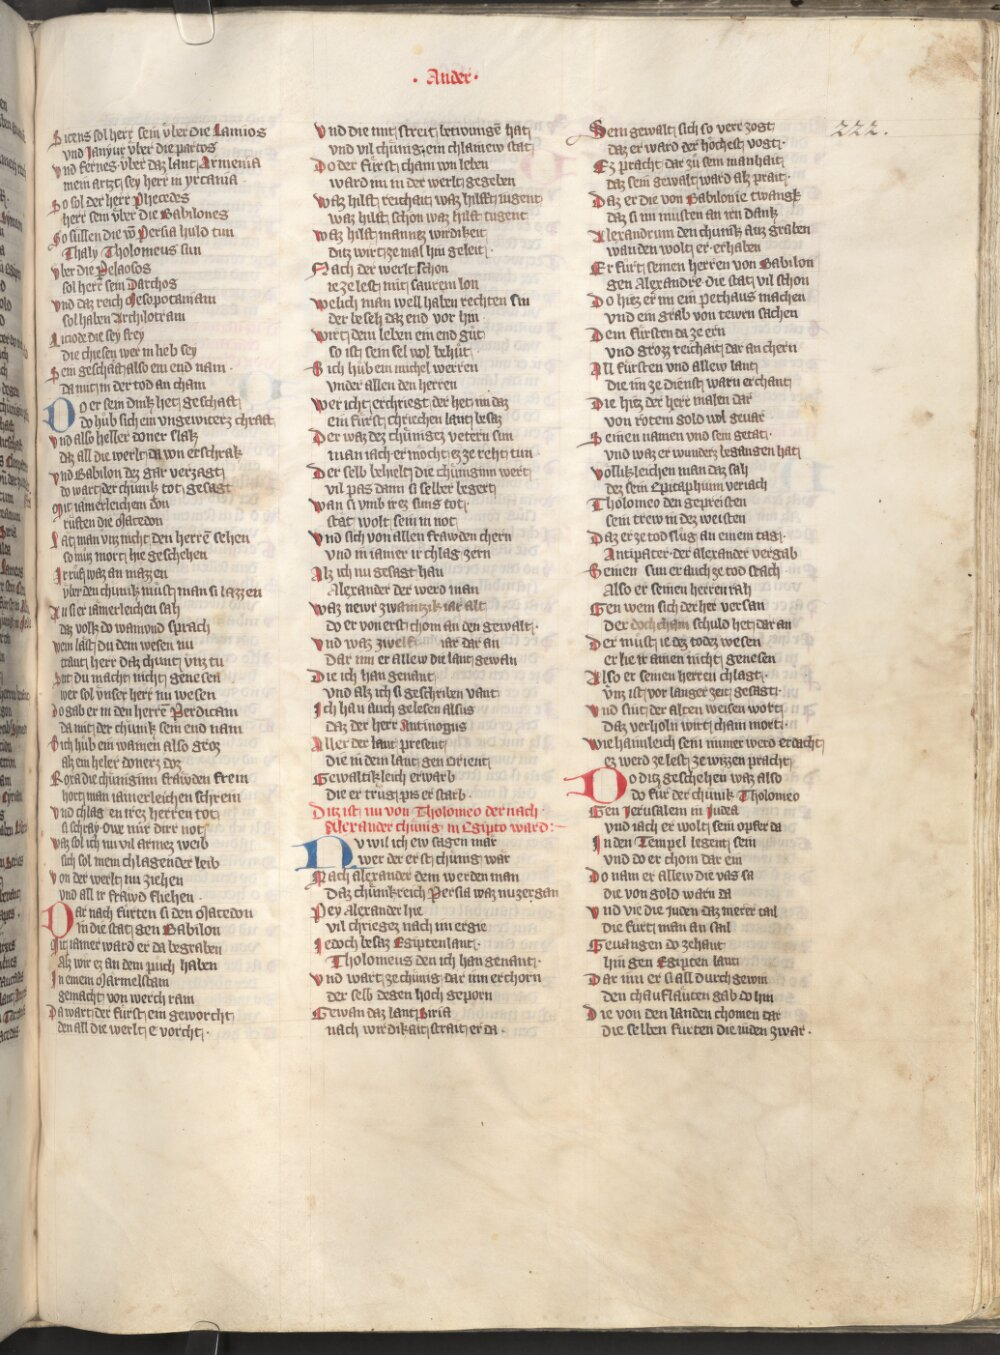 · Ander ·
222.
Sicens sol herr sein vber die Lamios
vnd Janyur vber die partos
Vnd fernes vber daz lant Armenia
mein artzt sey herr in yrcania ·
So sol der herr Phecedes
herr sein vber die Babilones
So süllen die vo Persia huld tun
Thaly Tholomeus sun
Vber die Pelaosos
sol herr sein Darchos
Vnd daz reich Mesopotaniam
sol haben Archilotram
Liciode die sey frey
die chiesen wer in lieb sey
Sein geschäft also ein end nam ·
da mit in der tod an cham
Do er sein dink het geschaft
do hüb sich ein ungewiterz chraft
Vnd also heller doner slak
daz all die werlt da von erschrak
Vnd Babilon dez gar verzagt
do wart der chünik tot gesagt
Mit iamerleichem don
rüften die Macedon
Lat man vnz nicht den herren sehen
so müz mort hie geschehen
Ir rüef waz an mazzen
vber den chunik müst man si lazzen
Au si er iamerleichen sah
daz volk do wainund sprach
Wem last du dem wesen nu
traut herr daz chunt vnz tu
Sint du macht nicht genesen
wer sol vnser herr nu wesen
Do gab er in den herren Perdicam
da mit der chunik sein end nam
Sich hüb ein wainen also groz
alz ein heler donerz doz
Roxa die chüniginn frawden frein
hort man iamerleichen schrein
Vnd chlag en irez herren tot
si schray owe mir dirr not
Waz sol ich nu vil armez weib
sich sol mein chlagender leib
Von der werlt nu ziehen
vnd all ir frawd fliehen ·
Dar nach fürten si den Macedon
in die stat gen Babilon
Mit iamer ward er da begraben
Alz wir ez an dem püch haben
In einem Marmelstain
gemacht von werch rain
Da wart der fürst ein geworcht
den all die werlt e vorcht ·
Vnd die mit streit betwungen hat
vnd vil chünig ein chlainew stat
Do der fürst cham von leben
ward im in der werlt gegeben
Waz hilft reichait waz hilfft iugent
waz hilft schön waz hilft tugent
Waz hilft mannez wirdikeit
ditz wirt ze mal hin geleit
Nach der werlt schon
ie ze lest mit saurem lon
Welich man well haben rechten sin
der beseh daz end vor hin
Wirt dem leben ein end güt
so ist sein sel wol behüt
Sich hüb ein michel werren
vnder allen den herren
Wer icht erchriegt der het im daz
ein fürst chriechen lant besaz
Der waz dez chünigz vetern sun
man iach er mocht ez ze reht tun
Der selb behielt die chüniginn wert
vil pas dann si selber begert
Wan si vmb irez sunz tot
stät wolt sein in not
Vnd sich von allen frawden chern
vnd in iamer ir chlag zern
Alz ich nu gesagt han
Alexander der werd man
Waz newr zwaintzik iar alt
do er von erst chom an den gewalt
Vnd waz zwelf iar dar an
Dar inn er allew die lant gewan
Die ich han genant
vnd alz ich si geschriben vant
Ich han auch gelesen alsus
daz der herr Antinogus
Aller der lant present
die in dem lant gen orient
Gewaltikleich erwarb
die er trüg pis er starb ·
Ditz ist nu von Tholomeo der nach
Alexander chünig in Egipto ward :~
Nu wil ich ew sagen mär
wer der erst chünig wär
Nach alexander dem werden man
Daz chünikreich Persia waz nu zergan
Pey Alexander hie
vil chriegez nach im ergie
Iedoch besaz Egipten lant
Tholomeus den ich han genant
Vnd wart ze chünig dar inn erchorn
der selb degen hoch geporn
Gewan daz lant Siria
nach wirdikait strait er da ·
Sein gewalt sich so verr zogt
daz er ward der höchest vogt
Ez pracht dar zu sein manhait
daz sein gewalt ward alz prait
Daz er die von Babilonie twangk
daz si im müsten an irn dank
Alexandrum den chunik auz graben
wan den wolt er erhaben
Er fürt seinen herren von Babilon
gen Alexandre die stat vil schon
Do hiez er im ein perhaus machen
vnd ein grab von tewrn sachen
Dem fürsten da ze ern
vnd grozz reichait dar an chern
All fürsten vnd allew lant
die im ze dienst warn erchant
Die hiez der herr malen dar
von rotem gold wol gevar
Seinen namen vnd sein getat
vnd waz er wunderz begangen hat
Vollikleichen man daz sah
dez sein Epitaphium veriach
Tholomeo den gepreisten
sein trew in dez weisten
Daz er ze tod slug an einem tag
Antipater der alexander vergab
Seinen sun er auch ze tod stach
Also er seinen herren rah
Gen wem sich der her versan
Der doch cham schuld het dar an
Der müst ie dez todez wesen
er lie ir ainen nicht genesen
Also er seinen herren chlagt
Vnz ist vor langer zeit gesagt
Vnd sint der alten weisen wort
Daz verholn wirt chain mort
Wie haimleich sein nimer werd erdacht
ez werd ze lest ze wizzen pracht
Do ditz geschehen waz also
do für der chünik Tholomeo
Gen Jerusalem in Judea
vnd iach er wolt sein opfer da
In den Tempel legent sein
vnd do er chom dar ein
Do nam er allew die vas sa
die von gold warn da
Vnd vie die Juden daz merer tail
die fürt man an sail
Gevangen do zehant
hin gen Egipten lant
Dar inn er si all durch gewin
den chauflauten gab do hin
Die von den landen chomen dar
die selben fürten die iuden zwar ·